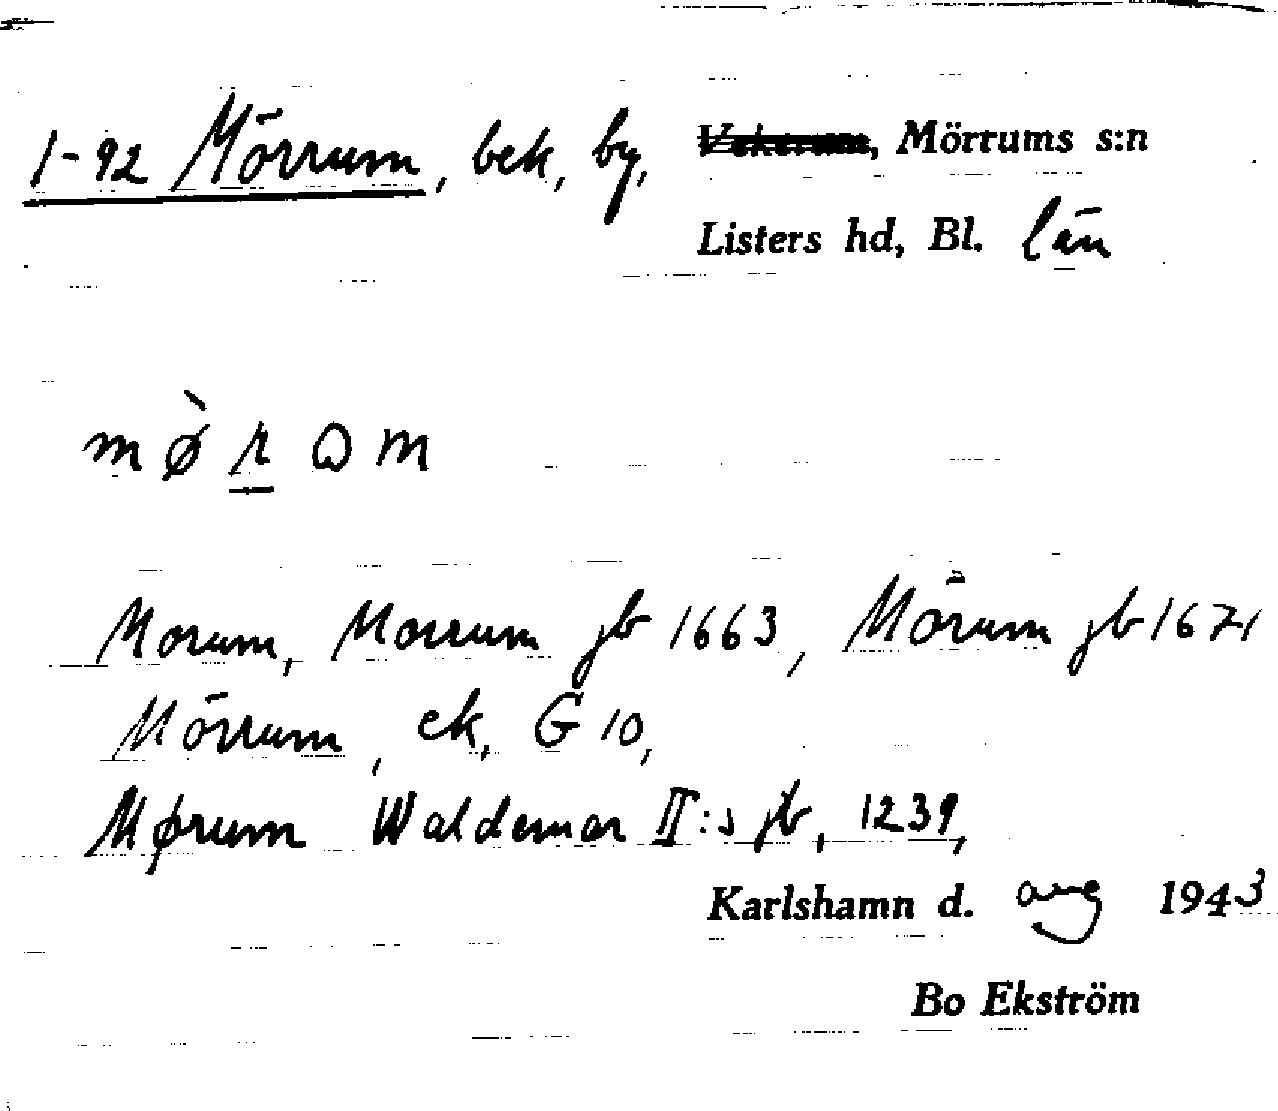 1-92 Mörrum, bek, by, Vekerum, Mörrums s:n
Listers hd, Bl. län
mø̀r̲ɷm
Morum, Morrum jb 1663, Mörum jb 1671
Mörrum, ek, G 10,
Mørum Waldemar II:s jb, 1239,
Karlshamn d. aug 1943
Bo Ekström